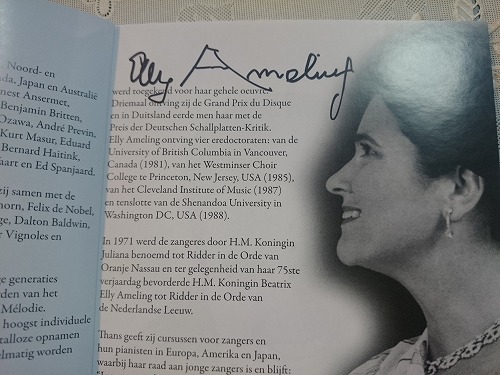 Noord- en
da, Japan en Australië
nest Ansermet,
Benjamin Britten,
Ozawa, André Previn,
Kurt Masur, Eduard
Bernard Haitink,
aart en Ed Spanjaard.
zij samen met de
horn, Felix de Nobel,
ge, Dalton Baldwin,
r Vignoles en
ge generaties
rden van het
Mélodie.
hoogst individuele
talloze opnamen
elmatig worden
Elly Ameling
werd toegekend voor haar gehele oeuvre.
Driemaal ontving zij de Grand Prix du Disque
en in Duitsland eerde men haar met de
Preis der Deutschen Schallplatten-Kritik.
Elly Ameling ontving vier eredoctoraten: van de
University of British Columbia in Vancouver,
Canada (1981), van het Westminser Choir
College te Princeton, New Jersey, USA (1985),
van het Cleveland Institute of Music (1987)
en tenslotte van de Shenandoa University in
Washington DC, USA (1988).
In 1971 werd de zangeres door H.M. Koningin
Juliana benoemd tot Ridder in de Orde van
Oranje Nassau en ter gelegenheid van haar 75ste
verjaardag bevorderde H.M. Koningin Beatrix
Elly Ameling tot Ridder in de Orde van
de Nederlandse Leeuw.
Thans geeft zij cursussen voor zangers en
hun pianisten in Europa, Amerika en Japan,
waarbij haar raad aan jonge zangers is en blijft: